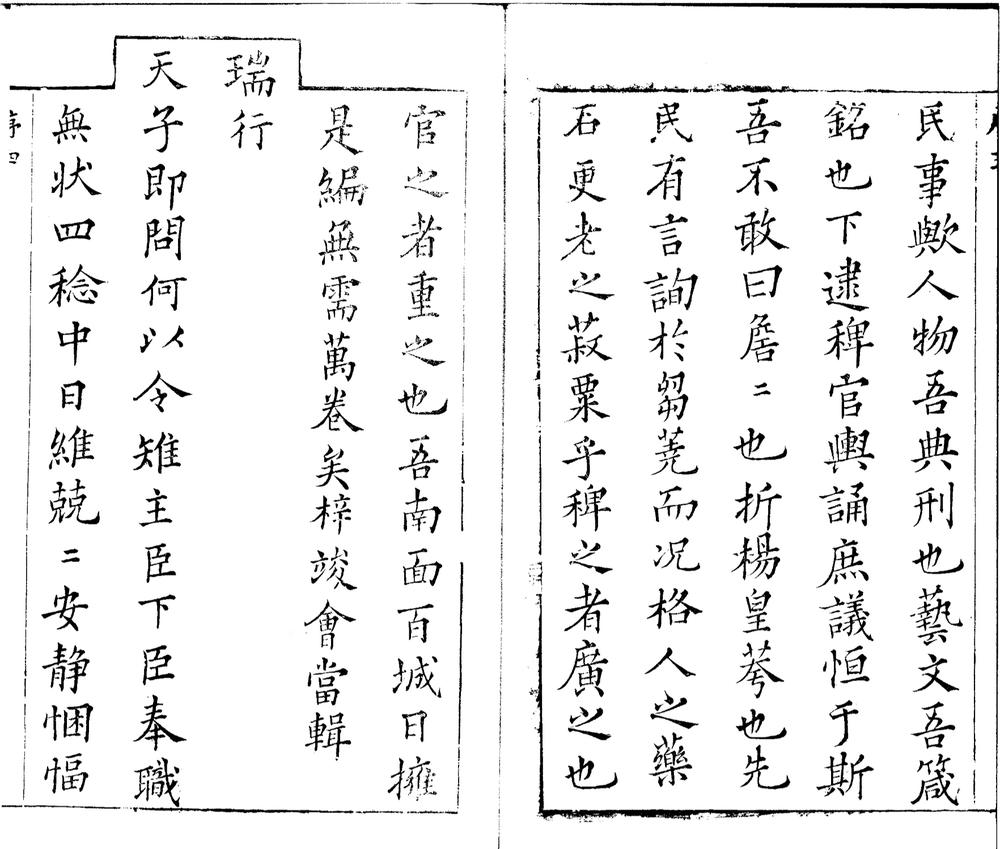 民事歟人物吾典刑也藝文吾箴
銘也下逮稗官輿誦庶議恒于斯
吾不敢曰詹〻也折楊皇荂也先
民有言詢於芻蕘而况格人之藥
石更老之菽粟乎稗之者廣之也
官之者重之也吾南面百城日擁
是編無需萬卷矣梓竣會當輯
瑞行
天子即問何以令雉主臣下臣奉職
無狀四稔中日維兢〻安静悃愊
序四